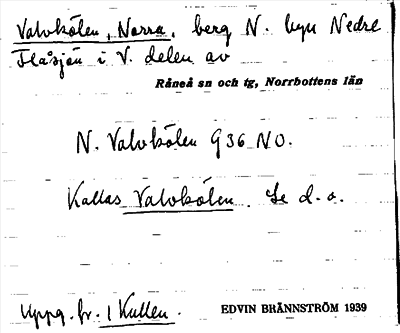 Valvkölen, Norra, berg N. byn Nedre
Flåsjön i V. delen av
Råneå sn och tg, Norrbottens län
N. Valvkölen G36 NO.
Kallas Valvkölen. Se d. o.
Uppg. fr. 1 Kullen.
EDVIN BRÄNNSTRÖM 1939